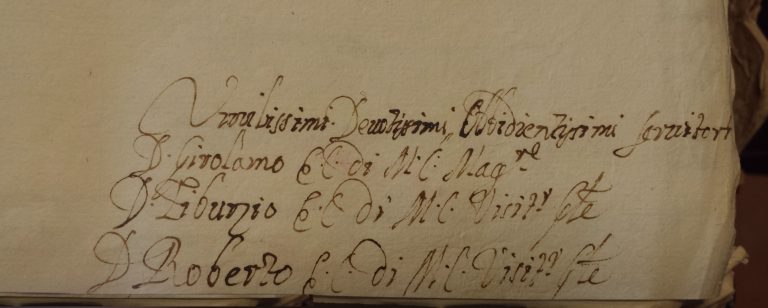 Humilissimi Devotissimi Obidientissimi servitori
D. Girolamo E. C. di M. C. Mag.re
D. Liburnio E. C. di M. C. Visit.r
D. Roberto E. C. di M. C. Visit.r